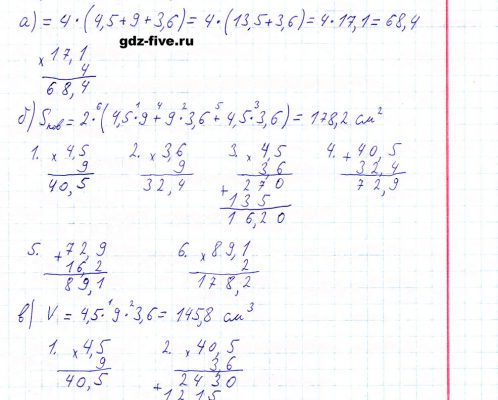 а) = 4 · (4,5 + 9 + 3,6) = 4 · (13,5 + 3,6) = 4 · 17,1 = 68,4
gdz-five.ru
× 17,1
4
68,4
б) Sпов = 2 ·⁶ (4,5 ·¹ 9 +⁴ 9 ·² 3,6 +⁵ 4,5 ·³ 3,6) = 178,2 см²
1. × 4,5
9
40,5
2. × 3,6
9
32,4
3. × 4,5
3,6
+ 270
135
16,20
4. + 40,5
32,4
72,9
5. + 72,9
16,2
89,1
6. × 89,1
2
178,2
в) V = 4,5 ·¹ 9 ·² 3,6 = 145,8 см³
1. × 4,5
9
40,5
2. × 40,5
3,6
+ 2430
1215